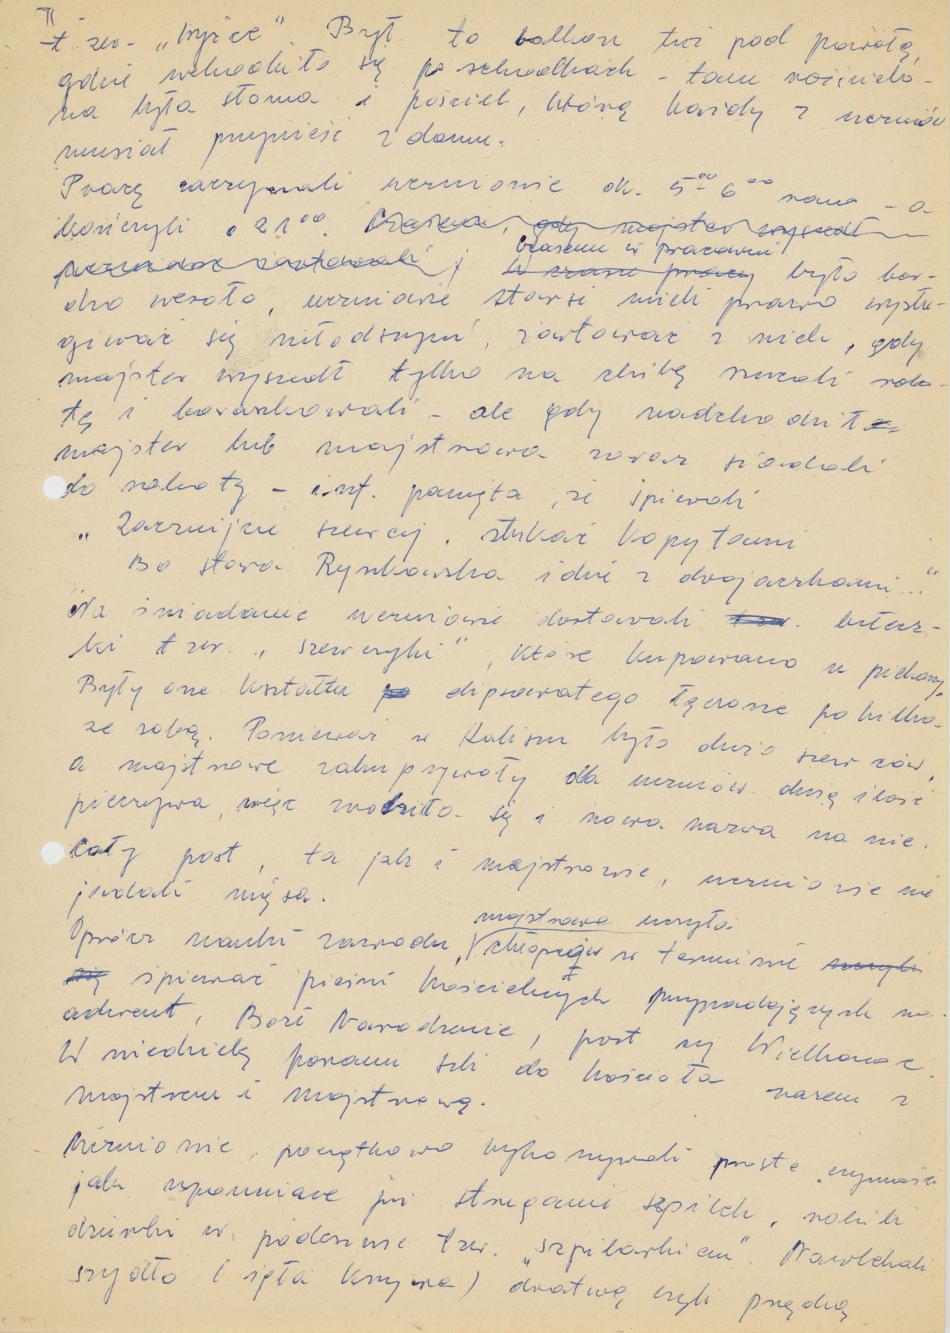 II
t zw. „wyżce" Był to balkon tuż pod powałą,
gdzie wchodziło się po schodkach - tam rozścielo-
na była słoma i pościel, którą każdy z uczniów
musiał przynieść z domu.
Pracę zaczynali uczniowie ok. 5⁰⁰ 6⁰⁰ rano - a
kończyli o 21⁰⁰. Czasem, gdy majster wyszedł
Czasem w pracowni
W czasie pracy było bar-
dzo wesoło, uczniowie starsi mieli prawo wysłu-
giwać się młodszymi, żartować z nich, gdy
majster wyszedł tylko na chibę rzucali robo-
tę i baraszkowali - ale gdy nadchodził
majster lub majstrowa zaraz siadali
do roboty - inf. pamięta, że śpiewali
„Zacznijcie szewcy, stukać kopytami
Bo stara Ryszkowska idzie z dwojaczkami..."
Na śniadanie uczniowie dostawali t zw. bułecz-
ki t zw. „szewczyki", które kupowano u piekarzy.
Były one kształtu po dłprawatego łączone po kilka
ze sobą. Ponieważ w Kaliszu było dużo szewców,
a majstrowe zakupywały dla uczniów dużą ilość
pieczywa, więc zrobiła się i nowa nazwa na nie.
Cały post, ta jak i majstrowie, uczniowie nie
jadali mięsa.
majstrowa uczyła
Oprócz nauki zawodu, chłopców w terminie uczyli
się śpiewać pieśni kościelnych przypadających na
adwent, Boże Narodzenie, post czy Wielkanoc.
W niedzielę poranu szli do kościoła razem z
majstrem i majstrową.
Uczniowie, początkowo wykonywali proste czynności
jak wspomniane już struganie szpilek, robili
dziurki w podeszwie t zw. „szpilarkiem". Nawlekali
szydło (igła krzywa) dratwą czyli przędzą